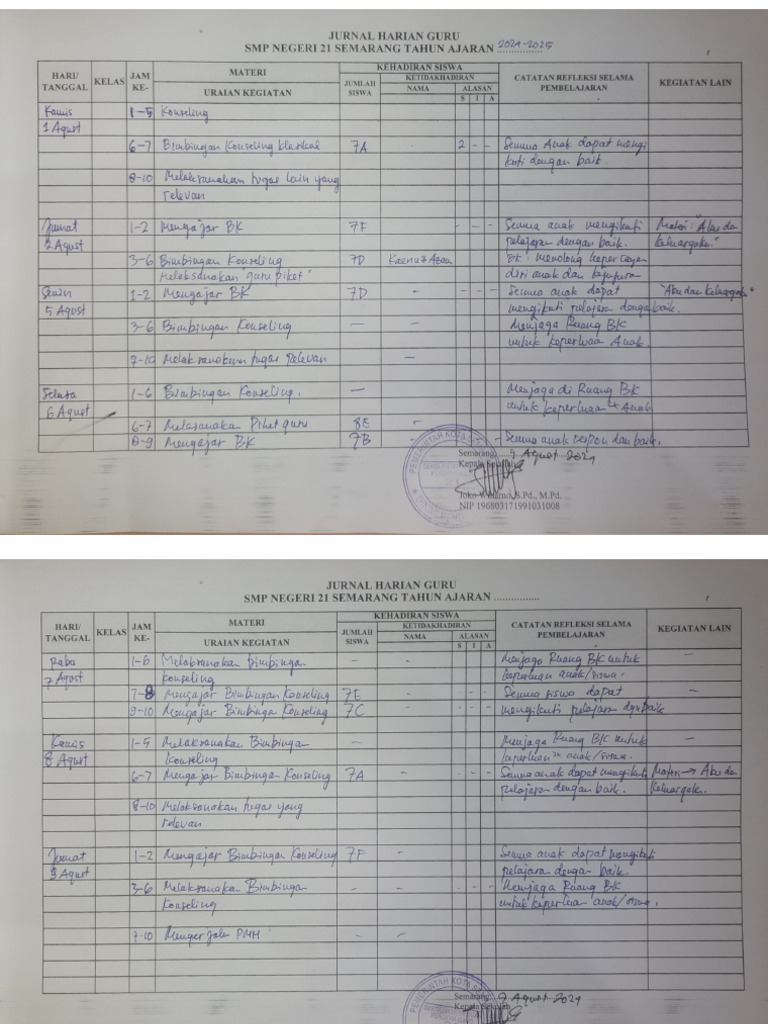 JURNAL HARIAN GURU
SMP NEGERI 21 SEMARANG TAHUN AJARAN 2024-2025
HARI/ TANGGAL KELAS JAM KE- MATERI URAIAN KEGIATAN KEHADIRAN SISWA JUMLAH SISWA KETIDAKHADIRAN NAMA ALASAN S I A CATATAN REFLEKSI SELAMA PEMBELAJARAN KEGIATAN LAIN
Kamis 1-5 Konseling
1 Agust
6-7 Bimbingan Konseling klasikal 7A - 2 - - Semua Anak dapat mengi
kuti dengan baik.
8-10 Melaksanakan tugas lain yang
relevan
Jumat 1-2 Mengajar BK 7F - - - Semua anak mengikuti Materi: "Aku dan
2 Agust pelajaran dengan baik. Keluargaku."
3-6 Bimbingan Konseling 7D BK: menolong
melaksanakan guru piket" dari anak dan
Senin 1-2 Mengajar BK 7D - - - - Semua anak dapat "Aku dan Keluargaku"
5 Agust mengikuti pelajaran dengan baik.
3-6 Bimbingan Konseling - - Menjaga Ruang BK
untuk keperluan Anak.
7-10 Melaksanakan tugas relevan -
Selasa 1-6 Bimbingan Konseling. - Menjaga di Ruang BK
6 Agust untuk keperluan Anak
6-7 Melaksanakan Piket guru 8E -
8-9 Mengajar BK 7B - Semua anak respon dan baik.
PEMERINTAH KOTA
Semarang, 9 Agust 2024
Kepala Sekolah
Joko W, S.Pd., M.Pd.
NIP 196803171991031008
JURNAL HARIAN GURU
SMP NEGERI 21 SEMARANG TAHUN AJARAN ...............
HARI/ TANGGAL KELAS JAM KE- MATERI URAIAN KEGIATAN KEHADIRAN SISWA JUMLAH SISWA KETIDAKHADIRAN NAMA ALASAN S I A CATATAN REFLEKSI SELAMA PEMBELAJARAN KEGIATAN LAIN
Rabu 1-6 Melaksanakan Bimbingan - - Menjaga Ruang BK untuk -
7 Agust konseling keperluan anak/siswa.
7-8 Mengajar Bimbingan Konseling 7E - - - - Semua siswa dapat -
9-10 Mengajar Bimbinga Konseling 7C - - - - mengikuti pelajaran dgn baik
Kamis 1-5 Melaksanakan Bimbingan - Menjaga Ruang BK untuk -
8 Agust Konseling keperluan anak/siswa.
6-7 Mengajar Bimbinga Konseling 7A - - - - Semua anak dapat mengikuti Materi → Aku dan
pelajaran dengan baik. Keluargaku.
8-10 Melaksanakan tugas yang
relevan
Jumat 1-2 Mengajar Bimbingan Konseling 7F - Semua anak dapat mengikuti
9 Agust pelajaran dengan baik.
3-6 Melaksanakan Bimbinga - - - - - Menjaga Ruang BK
Konseling untuk keperluan anak/siswa.
7-10 - -
PEMERINTAH KOTA
Semarang, 9 Agust 2024
Kepala Sekolah